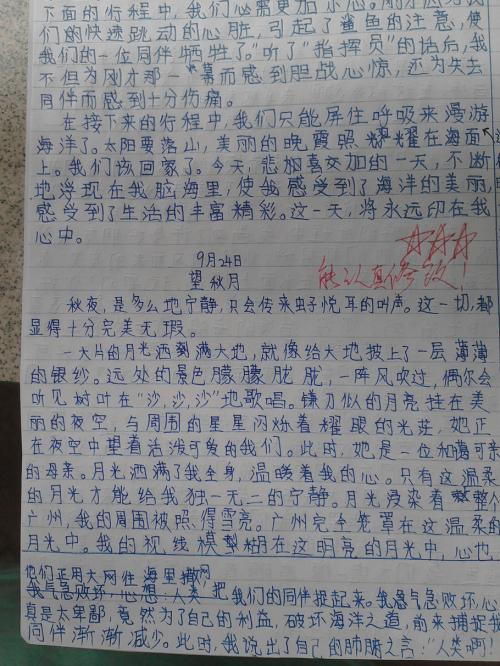 下面的行程中,我们必需更加小心。刚才因为我
们的快速跳动的心脏,引起了鲨鱼的注意,使
我们的一位同伴牺牲了。"听了"指挥员"的话后,我
不但为刚才那一幕而感到胆战心惊,还为失去
同伴而感到十分伤痛。
在接下来的行程中,我们只能屏住呼吸来漫游
海洋了。太阳要落山,美丽的晚霞照耀在海面
上。我们该回家了。今天,悲加喜交加的一天,不断
地浮现在我脑海里,使我感受到了海洋的美丽,
感受到了生活的丰富精彩。这一天,将永远印在我
心中。
能认真修改!
9月24日
望秋月
秋夜,是多么地宁静,只会传来虫子悦耳的叫声。这一切,都
显得十分完美无瑕。
一大片的月光洒满大地,就像给大地披上了一层薄薄
的银纱。远处的景色朦朦胧胧,一阵风吹过,偶尔会
听见树叶在"沙,沙,沙"地歌唱。镰刀似的月亮挂在美
丽的夜空,与周围的星星闪烁着耀眼的光茫,她正
在夜空中望着活泼可爱的我们。此时,她是一位和蔼可亲
的母亲。月光洒满了我全身,温暖着我的心。只有这温柔
的月光才能给我独一无二的宁静。月光浸染着整个
广州,我的周围被照得雪亮。广州完全笼罩在这温柔的
月光中。我的视线模糊在这明亮的月光中,心也
他们正用大网往海里撒网
我气急败坏,心想:人类把我们的同伴捉起来。我急气急败坏,心
真是太卑鄙,竟然为了自己的利益,破坏海洋之道,前来捕捉我
同伴渐渐减少。此时,我说出了自己的肺腑之言:"人类啊!